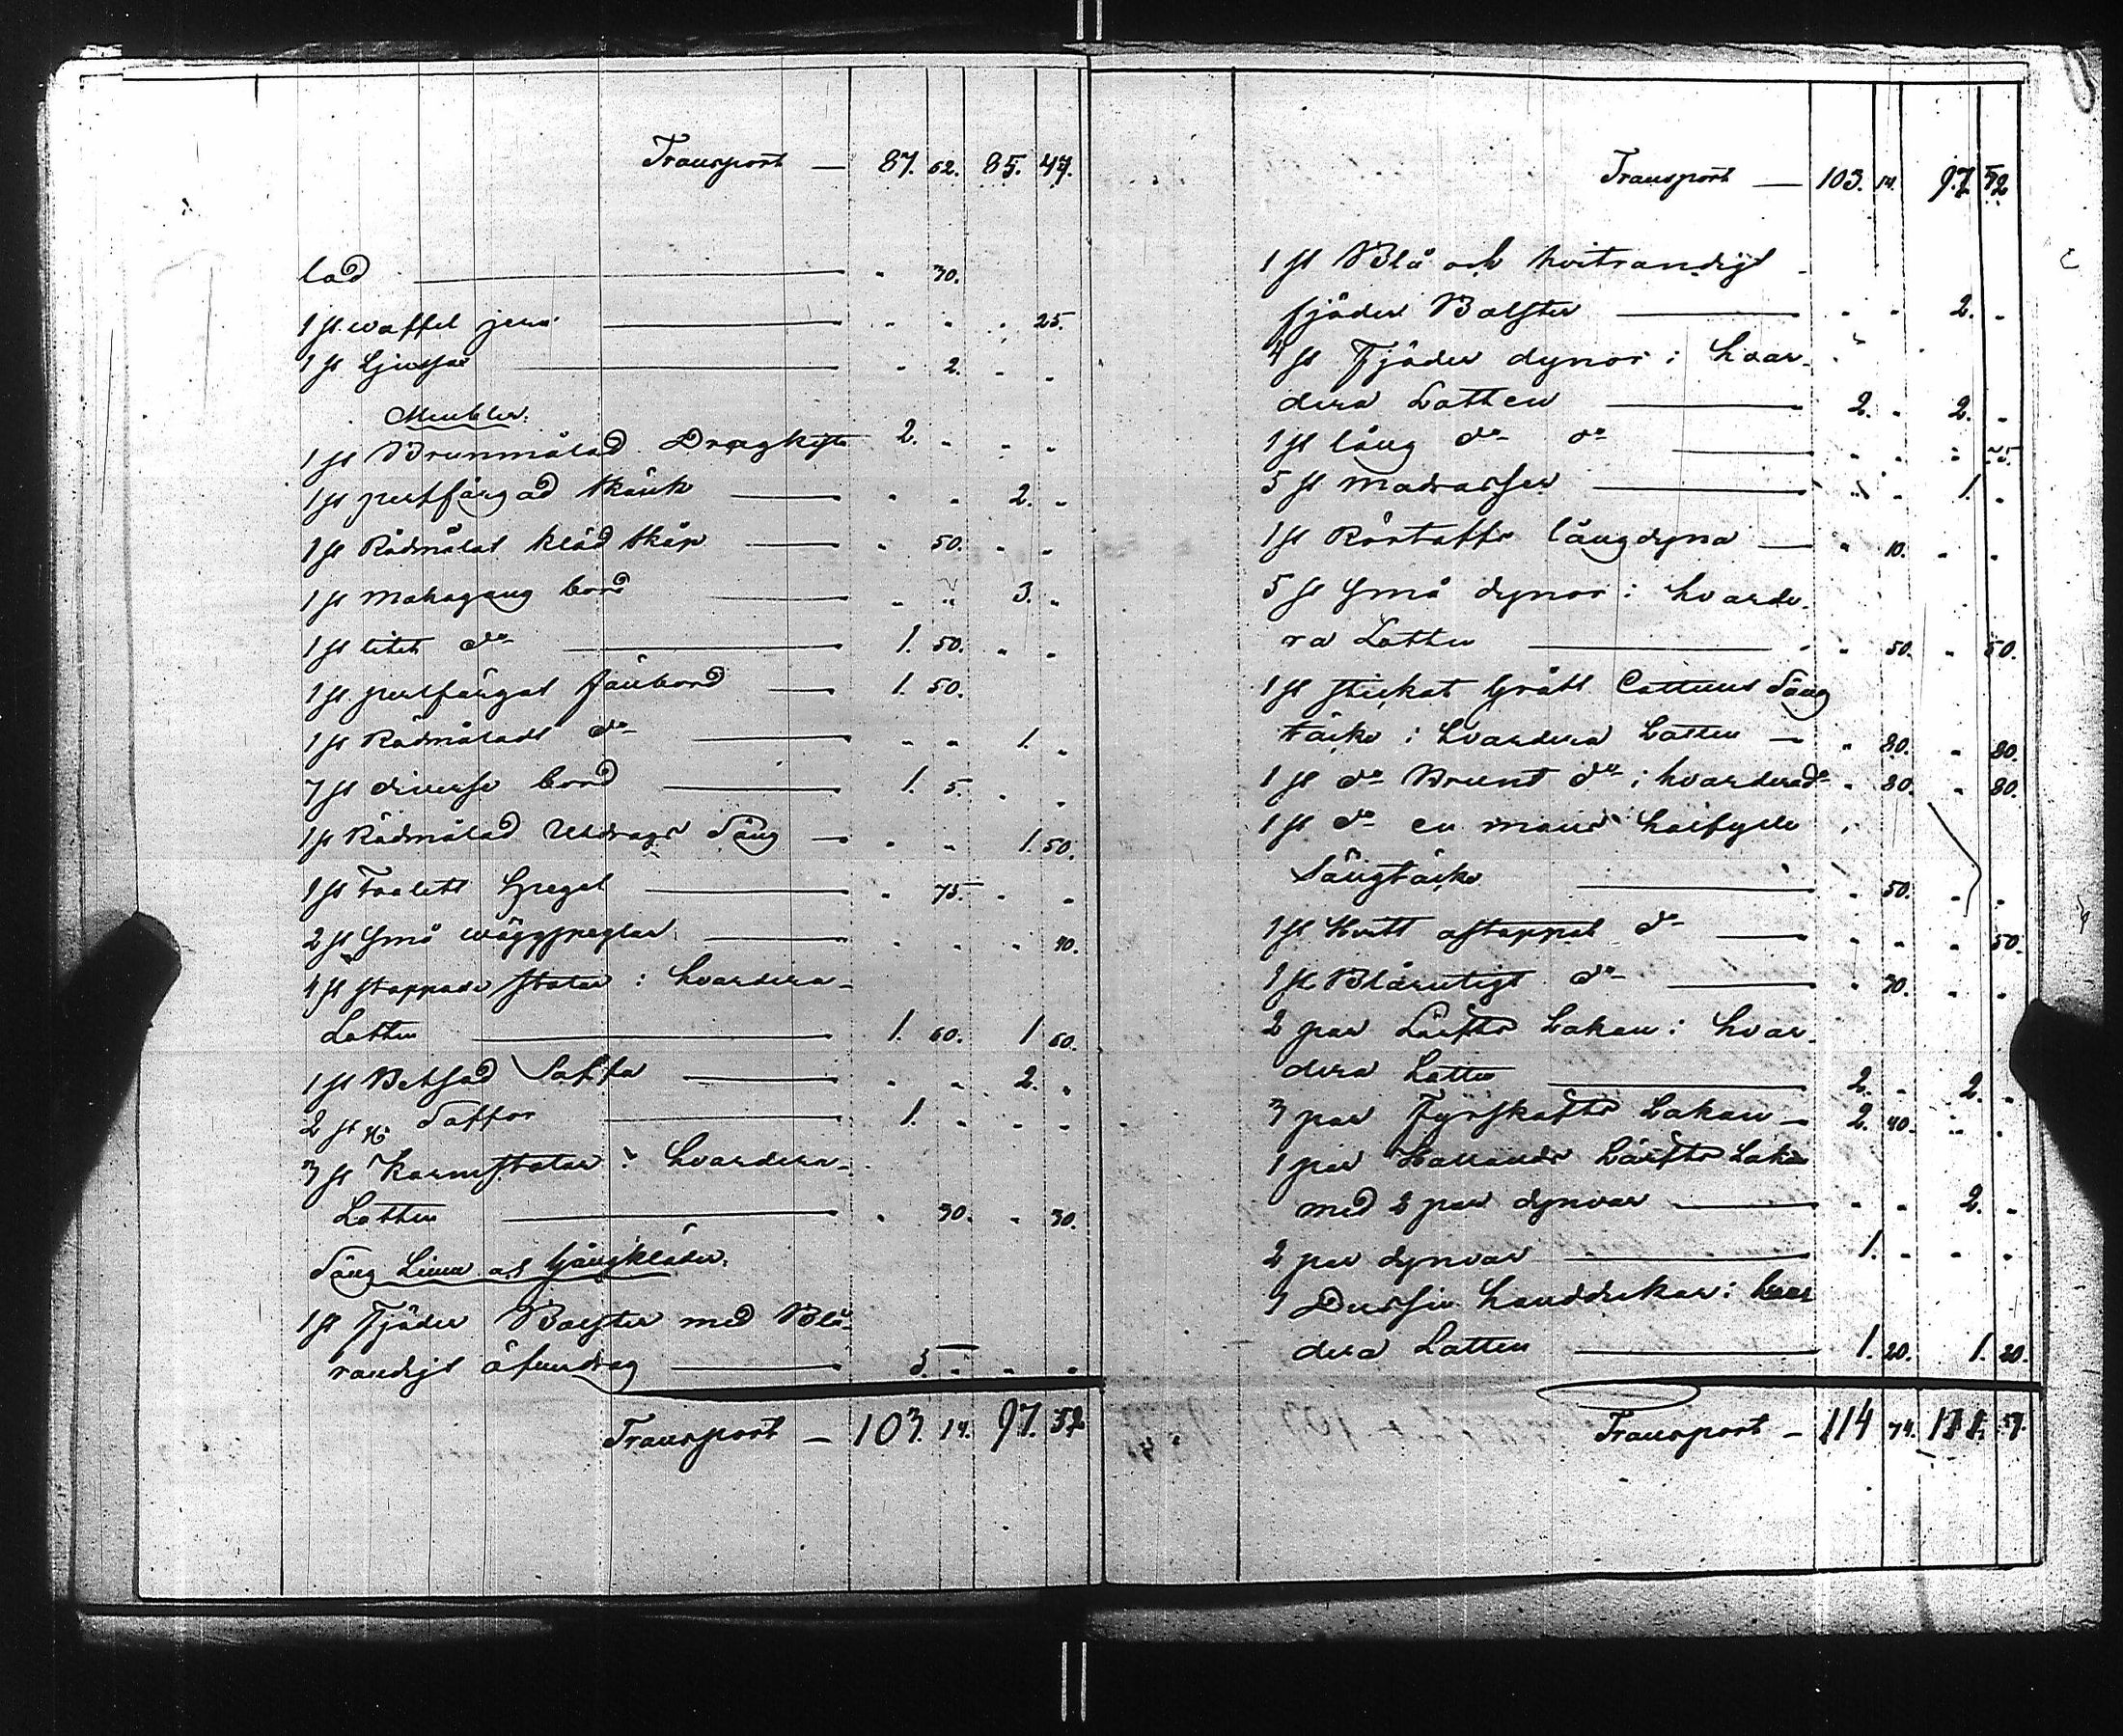 Transport — 87. 62. 85. 47.
lad — " 30.
1 st. waffel jern — " " " 25.
1 st Ljussax — " 2. " "
Meubler.
1 st Brunmålad Dragkista 2. " " "
1 st perlfärgad skänk — " " 2. "
1 st Rödmålat kläd skåp — " 50. " "
1 st Mahogany bord — " " 3. "
1 st litet do — 1. 50. " "
1 st perlfärgat fänbord — 1. 50.
1 st Rödmåladt do — " " 1. "
7 st diverse bord — 1. 5. " "
1 st Rödmålad Utdrags Säng — " " 1. 50.
1 st Toalett Spegel — " 75. " "
2 st Små wäggspeglar — " " " 40.
4 st stoppade stolar i hvardera
Lotten — 1. 60. 1 60.
1 st Betsad Soffa — " " 2. "
2 st Soffor — 1. " " "
3 st Karmstolar i hvardera
Lotten — " 30. " 30.
Säng Linne och Gångkläder.
1 st Fjäder Bolster med Blå
randigt öfverdrag — 5. " " "
Transport — 103. 14. 97. 52
Transport — 103. 14. 97. 52
1 st Blå och hvitrandigt
fjäder Bolster — " " 2. "
4 st Fjäder dynor i hvar
dera Lotten — 2. " 2. "
1 st lång do do — " " " 25.
5 st Madrasser — " " 1. "
1 st Röstoffs långdyna — " 10. " "
5 st Små dynor i hvarde
ra Lotten — " 50. " 50.
1 st stickat Grått Cattuns Säng
täcke i hvardera Lotten — " 80. " 80.
1 st do Brunt do i hvardera do " 80. " 80.
1 st do en mans
Sängtäcke — " 50. " "
1 st Hvitt ostoppat do — " " " 50
1 st Blårutigt do — " 70. " "
2 par Lärfts Lakan i hvar
dera Lotten — 2. " 2. "
3 par Fyrskafts Lakan — 2. 40. " "
1 par Hollands Lärfts Lakan
med 2 par dynvar — " " 2. "
2 par dynvar — 1. " " "
Dussin handdukar i hvar
dera Lotten — 1. 20. 1. 20.
Transport — 114 74.